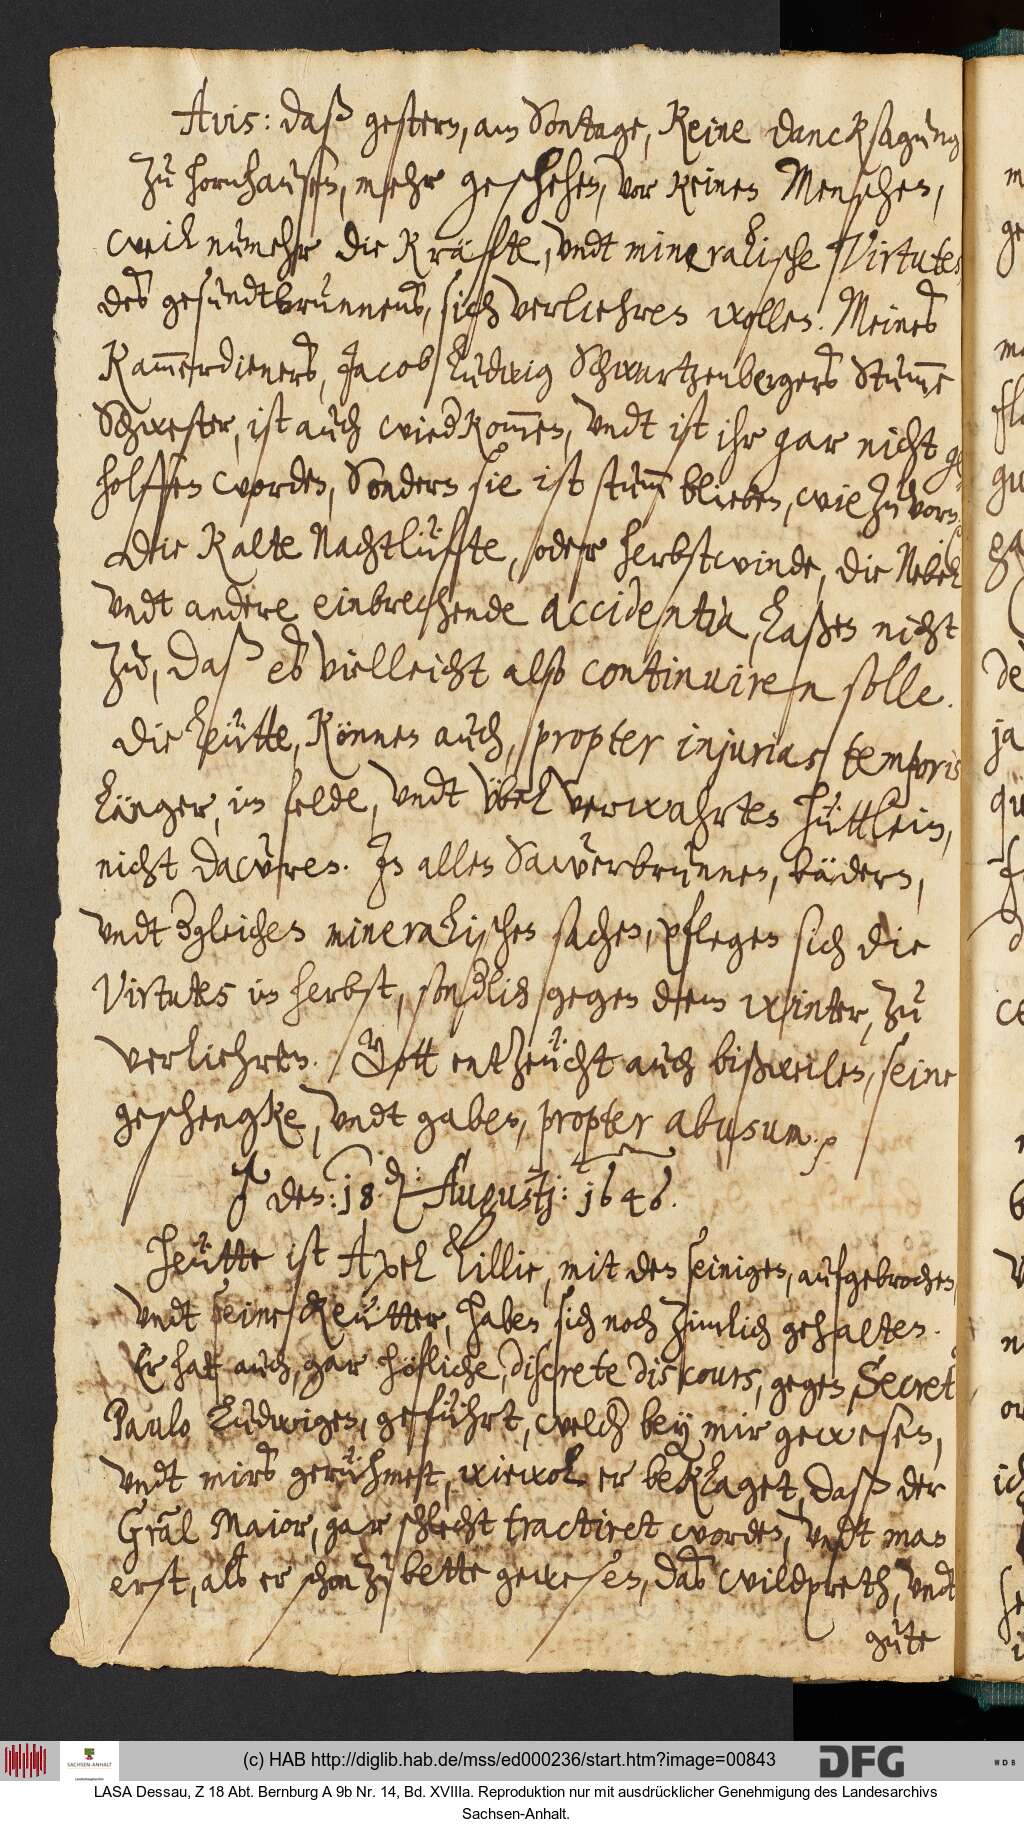 Avis: daß gestern, am Sontage, Keine dancksagung
zu hornhausen, mehr geschehen, vor keinen Menschen,
weil nunmehr die Kräffte, undt mineralische Virtutes
des gesundtbrunnens, sich verliehren wollen. Meines
Kam̅erdieners, Jacob Ludwig Schwartzenbergers Stum̅e
Schwester, ist auch wied kom̅en, undt ist ihr gar nicht ge
holffen worden, Sondern sie ist stum̅ blieben, wie zuvorn.
Die Kalte Nachtlüffte, oder herbstwinde, die Nebel
undt andere einbrechende accidentia, laßen nicht
zu, daß es vielleicht also continuiren solle.
Die leütte, Können auch, propter injurias temporis
länger, im felde, undt übel verwahrten hüttlein,
nicht dawren. In allen Sawerbrunnen, bädern,
undt dgleichen mineralischen sachen, pflegen sich die
Virtutes im herbst, sondlich gegen dem winter, zu
verliehren. Gott entzeücht auch bißweilen, seine
geschengke, undt gaben, propter abusum. ⸗
♂ den: 18. d: Augustj: 1646.
Heütte ist Axel Lillie, mit den seinigen, aufgebrochen,
undt seine Reütter, haben sich noch zimlich gehalten.
Er hat auch, gar höfliche, discrete discours, gegen Secret
Paulo Ludwigen, geführt, welch bey mir gewesen,
undt mirs gerühmet, wiewol er beklaget, daß der
Gral Maior, gar schlecht tractiret worden, undt man
erst, als er schon zu bette gewesen, das wildpreth, undt
gute
(c) HAB http://diglib.hab.de/mss/ed000236/start.htm?image=00843
SACHSEN-ANHALT
DFG
WDB
LASA Dessau, Z 18 Abt. Bernburg A 9b Nr. 14, Bd. XVIIIa. Reproduktion nur mit ausdrücklicher Genehmigung des Landesarchivs
Sachsen-Anhalt.